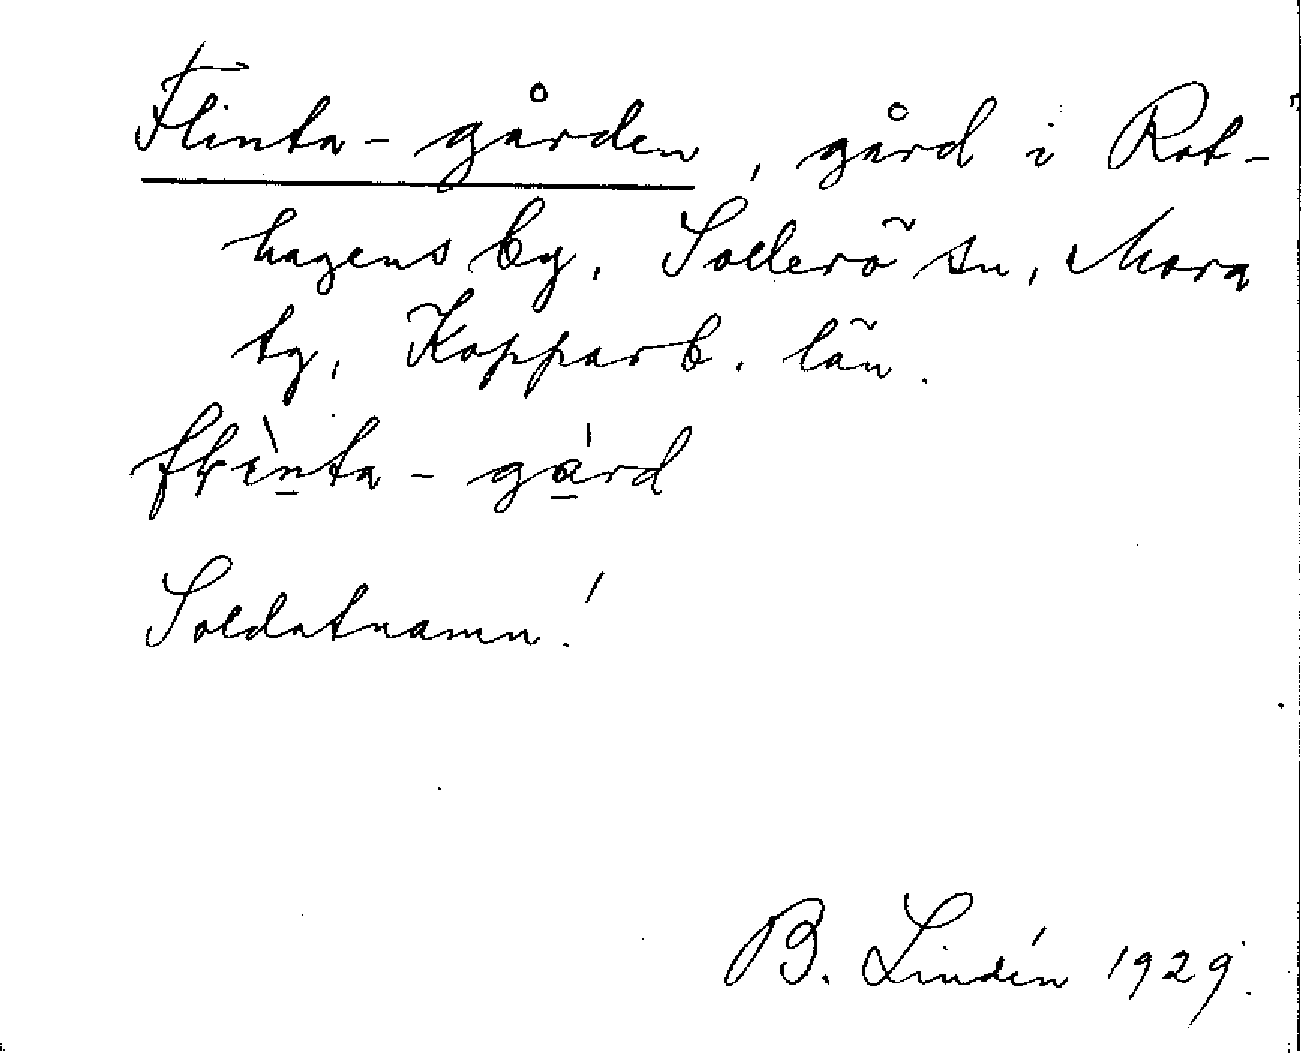 Flinta-gården, gård i Rot-
hagens by, Sollerö sn, Mora
tg, Kopparb. län.
-gård
Soldatnamn!
B. Lindén 1929.